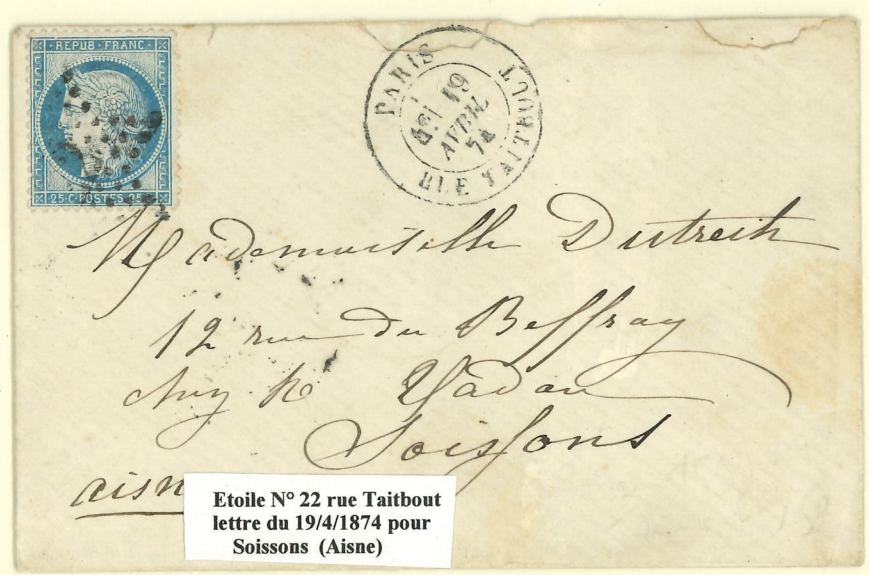 REPUB · FRANC
25 · C · POSTES · 25
PARIS
19
AVRIL
74
RUE TAITBOUT
Mademoiselle
12 rue du Beffray
Soissons
aisn
Etoile N° 22 rue Taitbout
lettre du 19/4/1874 pour
Soissons (Aisne)